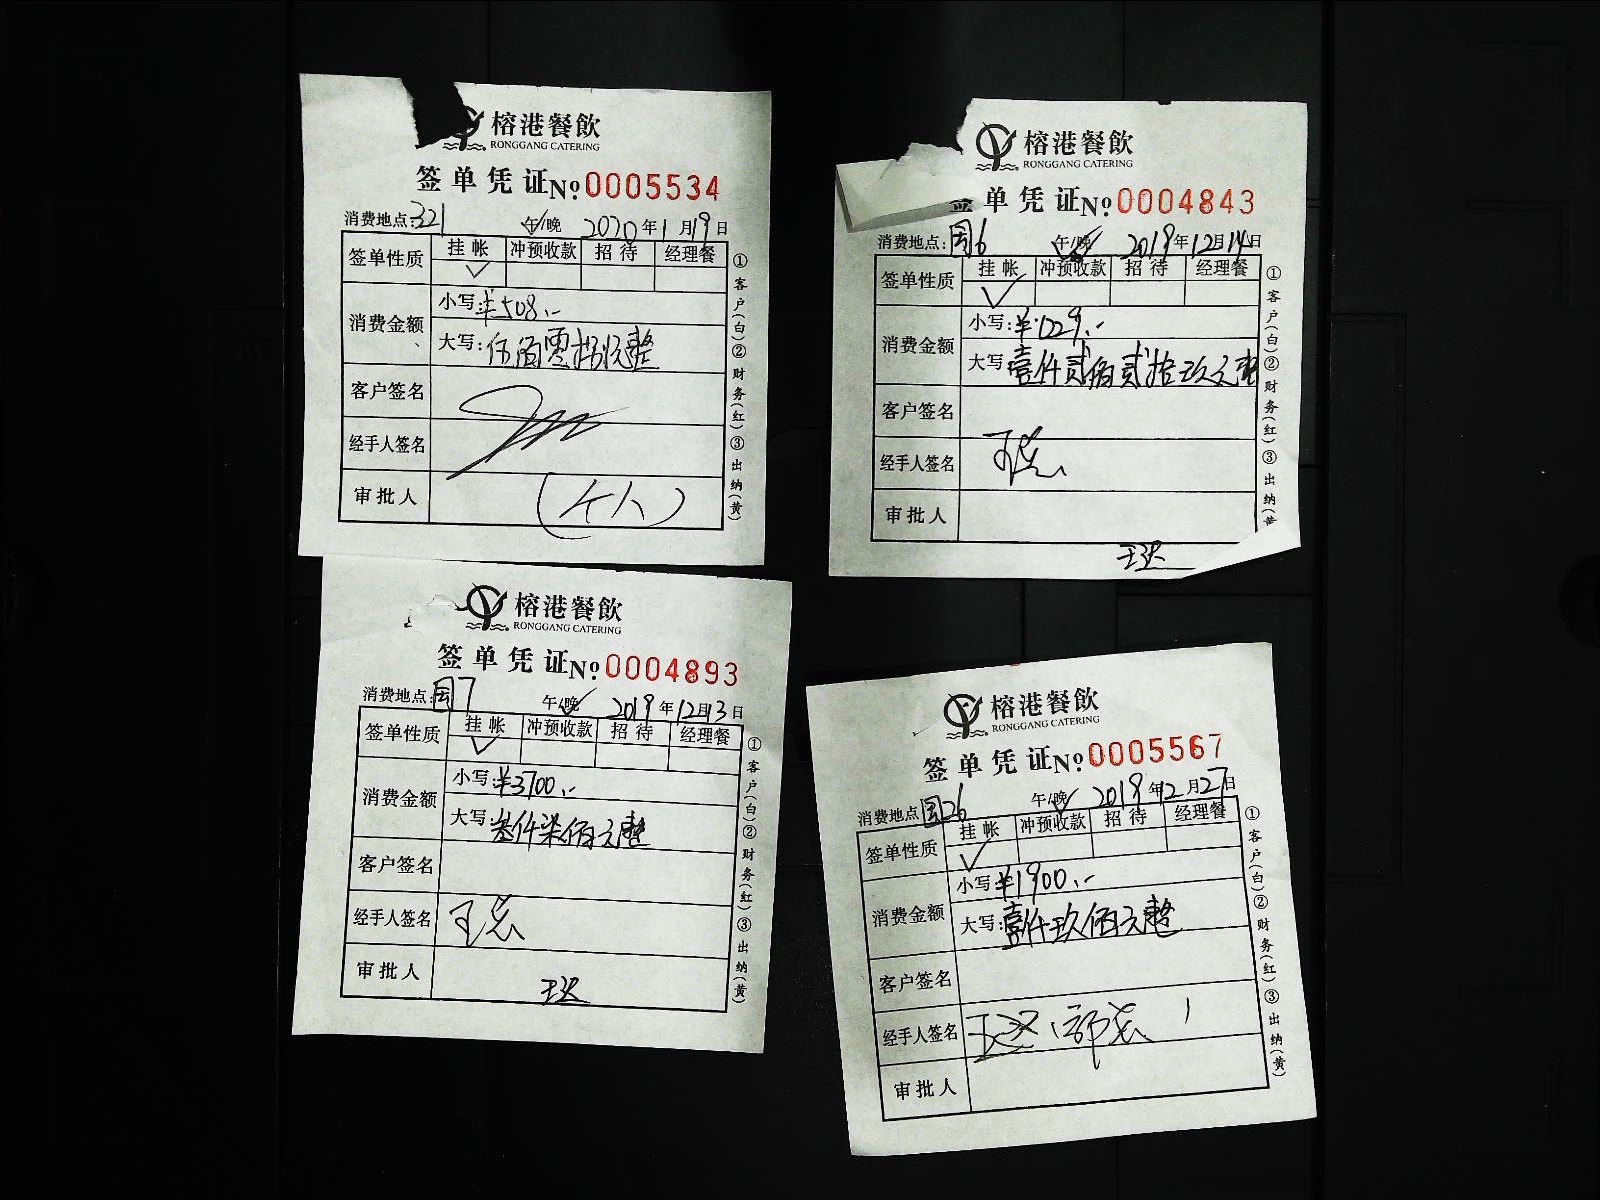 榕港餐飲
RONGGANG CATERING
签单凭证№0005534
消费地点:321 午/晚 2020年1月19日
签单性质 挂帐 冲预收款 招待 经理餐
消费金额 小写:¥508.-
大写:伍佰零捌元整
客户签名
经手人签名
审批人 (个人)
①客户(白)②财务(红)③出纳(黄)
榕港餐飲
RONGGANG CATERING
签单凭证№0004843
消费地点:园6 午/晚 2019年12月14日
签单性质 挂帐 冲预收款 招待 经理餐
消费金额 小写:¥1229.-
大写:壹仟贰佰贰拾玖元整
客户签名
经手人签名
审批人
①客户(白)②财务(红)③出纳(黄
榕港餐飲
RONGGANG CATERING
签单凭证№0004893
消费地点:园7 午/晚 2019年12月13日
签单性质 挂帐 冲预收款 招待 经理餐
消费金额 小写:¥3700.-
大写:叁仟柒佰元整
客户签名
经手人签名 王总
审批人
①客户(白)②财务(红)③出纳(黄)
榕港餐飲
RONGGANG CATERING
签单凭证№0005567
消费地点 园26 午/晚 2019年12月27日
签单性质 挂帐 冲预收款 招待 经理餐
消费金额 小写 ¥1900.-
大写:壹仟玖佰元整
客户签名
经手人签名
审批人
①客户(白)②财务(红)③出纳(黄)